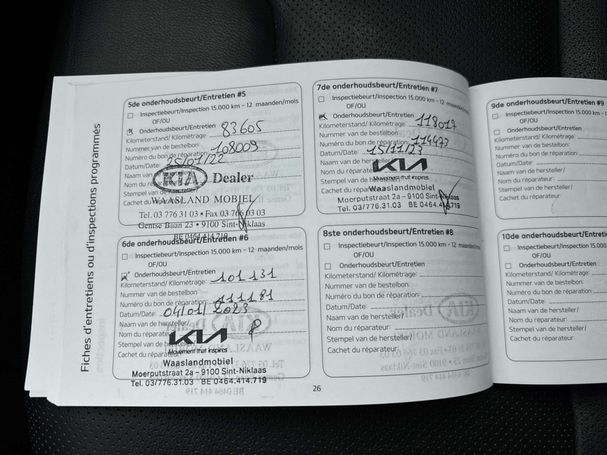 Fiches d'entretiens ou d'inspections programmés
5de onderhoudsbeurt/Entretien #5
Inspectiebeurt/Inspection 15.000 km - 12 maanden/mois
OF/OU
Onderhoudsbeurt/Entretien
Kilometerstand/ Kilométrage: 83605
Nummer van de bestelbon:
Numéro du bon de réparation: 108009
Datum/Date: 25/01/22
Naam van
Nom du
Stempel van
Cachet du
KIA Dealer
WAASLAND MOBIEL
Tel. 03 776 31 03 • Fax 03 766 03 03
Gentse Baan 23 • 9100 Sint-Niklaas
BE 0464 414 719
6de onderhoudsbeurt/Entretien #6
Inspectiebeurt/Inspection 15.000 km - 12 maanden/mois
OF/OU
Onderhoudsbeurt/Entretien
Kilometerstand/ Kilométrage: 101131
Nummer van de bestelbon:
Numéro du bon de réparation: 111181
Datum/Date: 04/01/2023
Naam van de hersteller/
Nom du réparateur:
Stempel van de
Cachet du
KIA
Movement that inspires
Waaslandmobiel
Moerputstraat 2a - 9100 Sint-Niklaas
Tel. 03/776.31.03 BE 0464.414.719
7de onderhoudsbeurt/Entretien #7
Inspectiebeurt/Inspection 15.000 km - 12 maanden/mois
OF/OU
Onderhoudsbeurt/Entretien
Kilometerstand/ Kilométrage: 118017
Nummer van de bestelbon:
Numéro du bon de réparation: 114473
Datum/Date: 15/11/23
Naam van de
Nom du réparateur:
Stempel van de
Cachet du
KIA
Movement that inspires
Waaslandmobiel
Moerputstraat 2a - 9100 Sint-Niklaas
Tel. 03/776.31.03 BE 0464.414.719
8ste onderhoudsbeurt/Entretien #8
Inspectiebeurt/Inspection 15.000 km - 12 maanden/mois
OF/OU
Onderhoudsbeurt/Entretien
Kilometerstand/ Kilométrage:
Nummer van de bestelbon:
Numéro du bon de réparation:
Datum/Date:
Naam van de hersteller/
Nom du réparateur:
Stempel van de hersteller/
Cachet du réparateur:
26
9de onderhoudsbeurt/Entretien #9
Inspectiebeurt/Inspection
OF/OU
Onderhoudsbeurt/Entretien
Kilometerstand/ Kilométrage:
Nummer van de bestelbon:
Numéro du bon de réparation:
Datum/Date:
Naam van de hersteller/
Nom du réparateur:
Stempel van de hersteller/
Cachet du réparateur:
10de onderhoudsbeurt/Entretien
Inspectiebeurt/Inspection
OF/OU
Onderhoudsbeurt/Entretien
Kilometerstand/ Kilométrage:
Nummer van de bestelbon:
Numéro du bon de réparation:
Datum/Date:
Naam van de hersteller/
Nom du réparateur:
Stempel van de hersteller/
Cachet du réparateur: